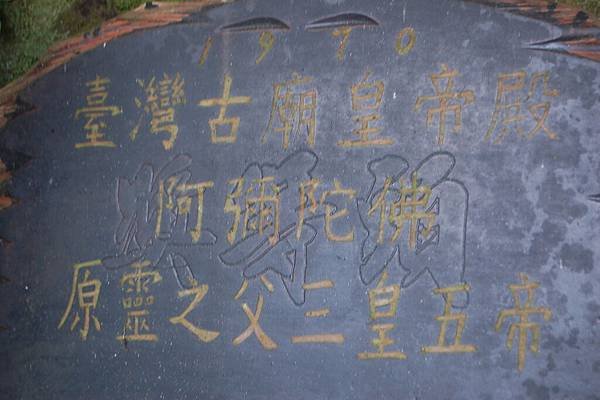 1970
臺灣古廟皇帝殿
阿彌陀佛
原靈之父三皇五帝